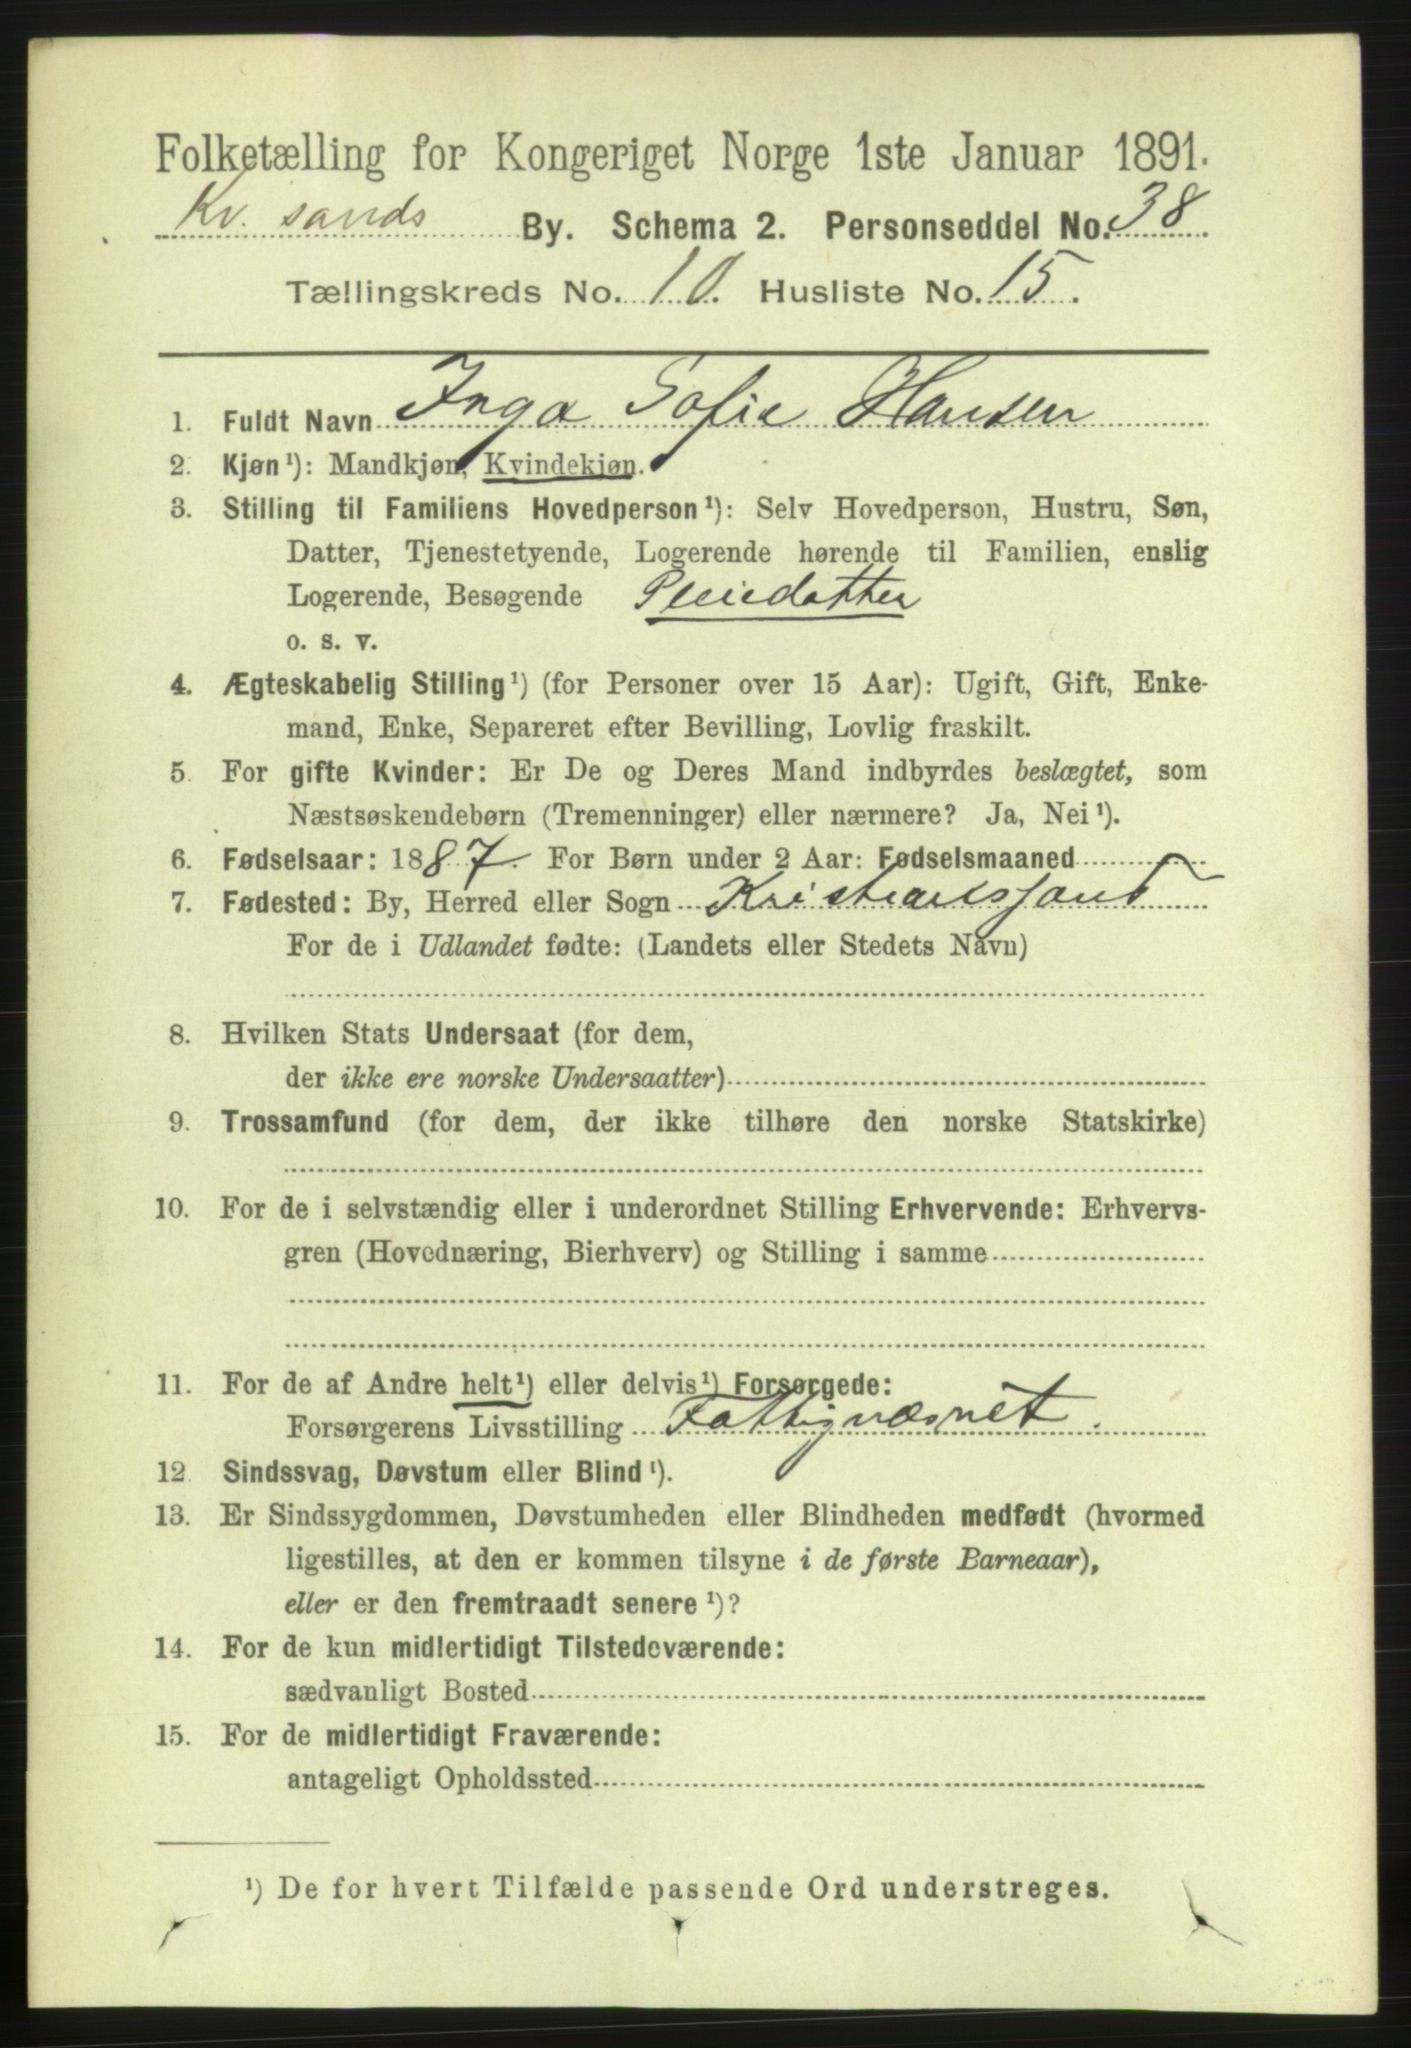 Folketælling for Kongeriget Norge 1ste Januar 1891.
Kv. sands By. Schema 2. Personseddel No. 38
Tællingskreds No. 10. Husliste No. 15.
1. Fuldt Navn Inga Sofie Hansen
2. Kjøn¹): Mandkjøn, Kvindekjøn.
3. Stilling til Familiens Hovedperson¹): Selv Hovedperson, Hustru, Søn,
Datter, Tjenestetyende, Logerende hørende til Familien, enslig
Logerende, Besøgende Pleiedatter
o. s. v.
4. Ægteskabelig Stilling¹) (for Personer over 15 Aar): Ugift, Gift, Enke-
mand, Enke, Separeret efter Bevilling, Lovlig fraskilt.
5. For gifte Kvinder: Er De og Deres Mand indbyrdes beslægtet, som
Næstsøskendebørn (Tremenninger) eller nærmere? Ja, Nei¹).
6. Fødselsaar: 1887. For Børn under 2 Aar: Fødselsmaaned
7. Fødested: By, Herred eller Sogn Kristianssand
For de i Udlandet fødte: (Landets eller Stedets Navn)
8. Hvilken Stats Undersaat (for dem,
der ikke ere norske Undersaatter)
9. Trossamfund (for dem, der ikke tilhøre den norske Statskirke)
10. For de i selvstændig eller i underordnet Stilling Erhvervende: Erhvervs-
gren (Hovednæring, Bierhverv) og Stilling i samme
11. For de af Andre helt¹) eller delvis¹) Forsørgede:
Forsørgerens Livsstilling Fattigvæsnet.
12. Sindssvag, Døvstum eller Blind¹).
13. Er Sindssygdommen, Døvstumheden eller Blindheden medfødt (hvormed
ligestilles, at den er kommen tilsyne i de første Barneaar),
eller er den fremtraadt senere¹)?
14. For de kun midlertidigt Tilstedeværende:
sædvanligt Bosted
15. For de midlertidigt Fraværende:
antageligt Opholdssted
¹) De for hvert Tilfælde passende Ord understreges.